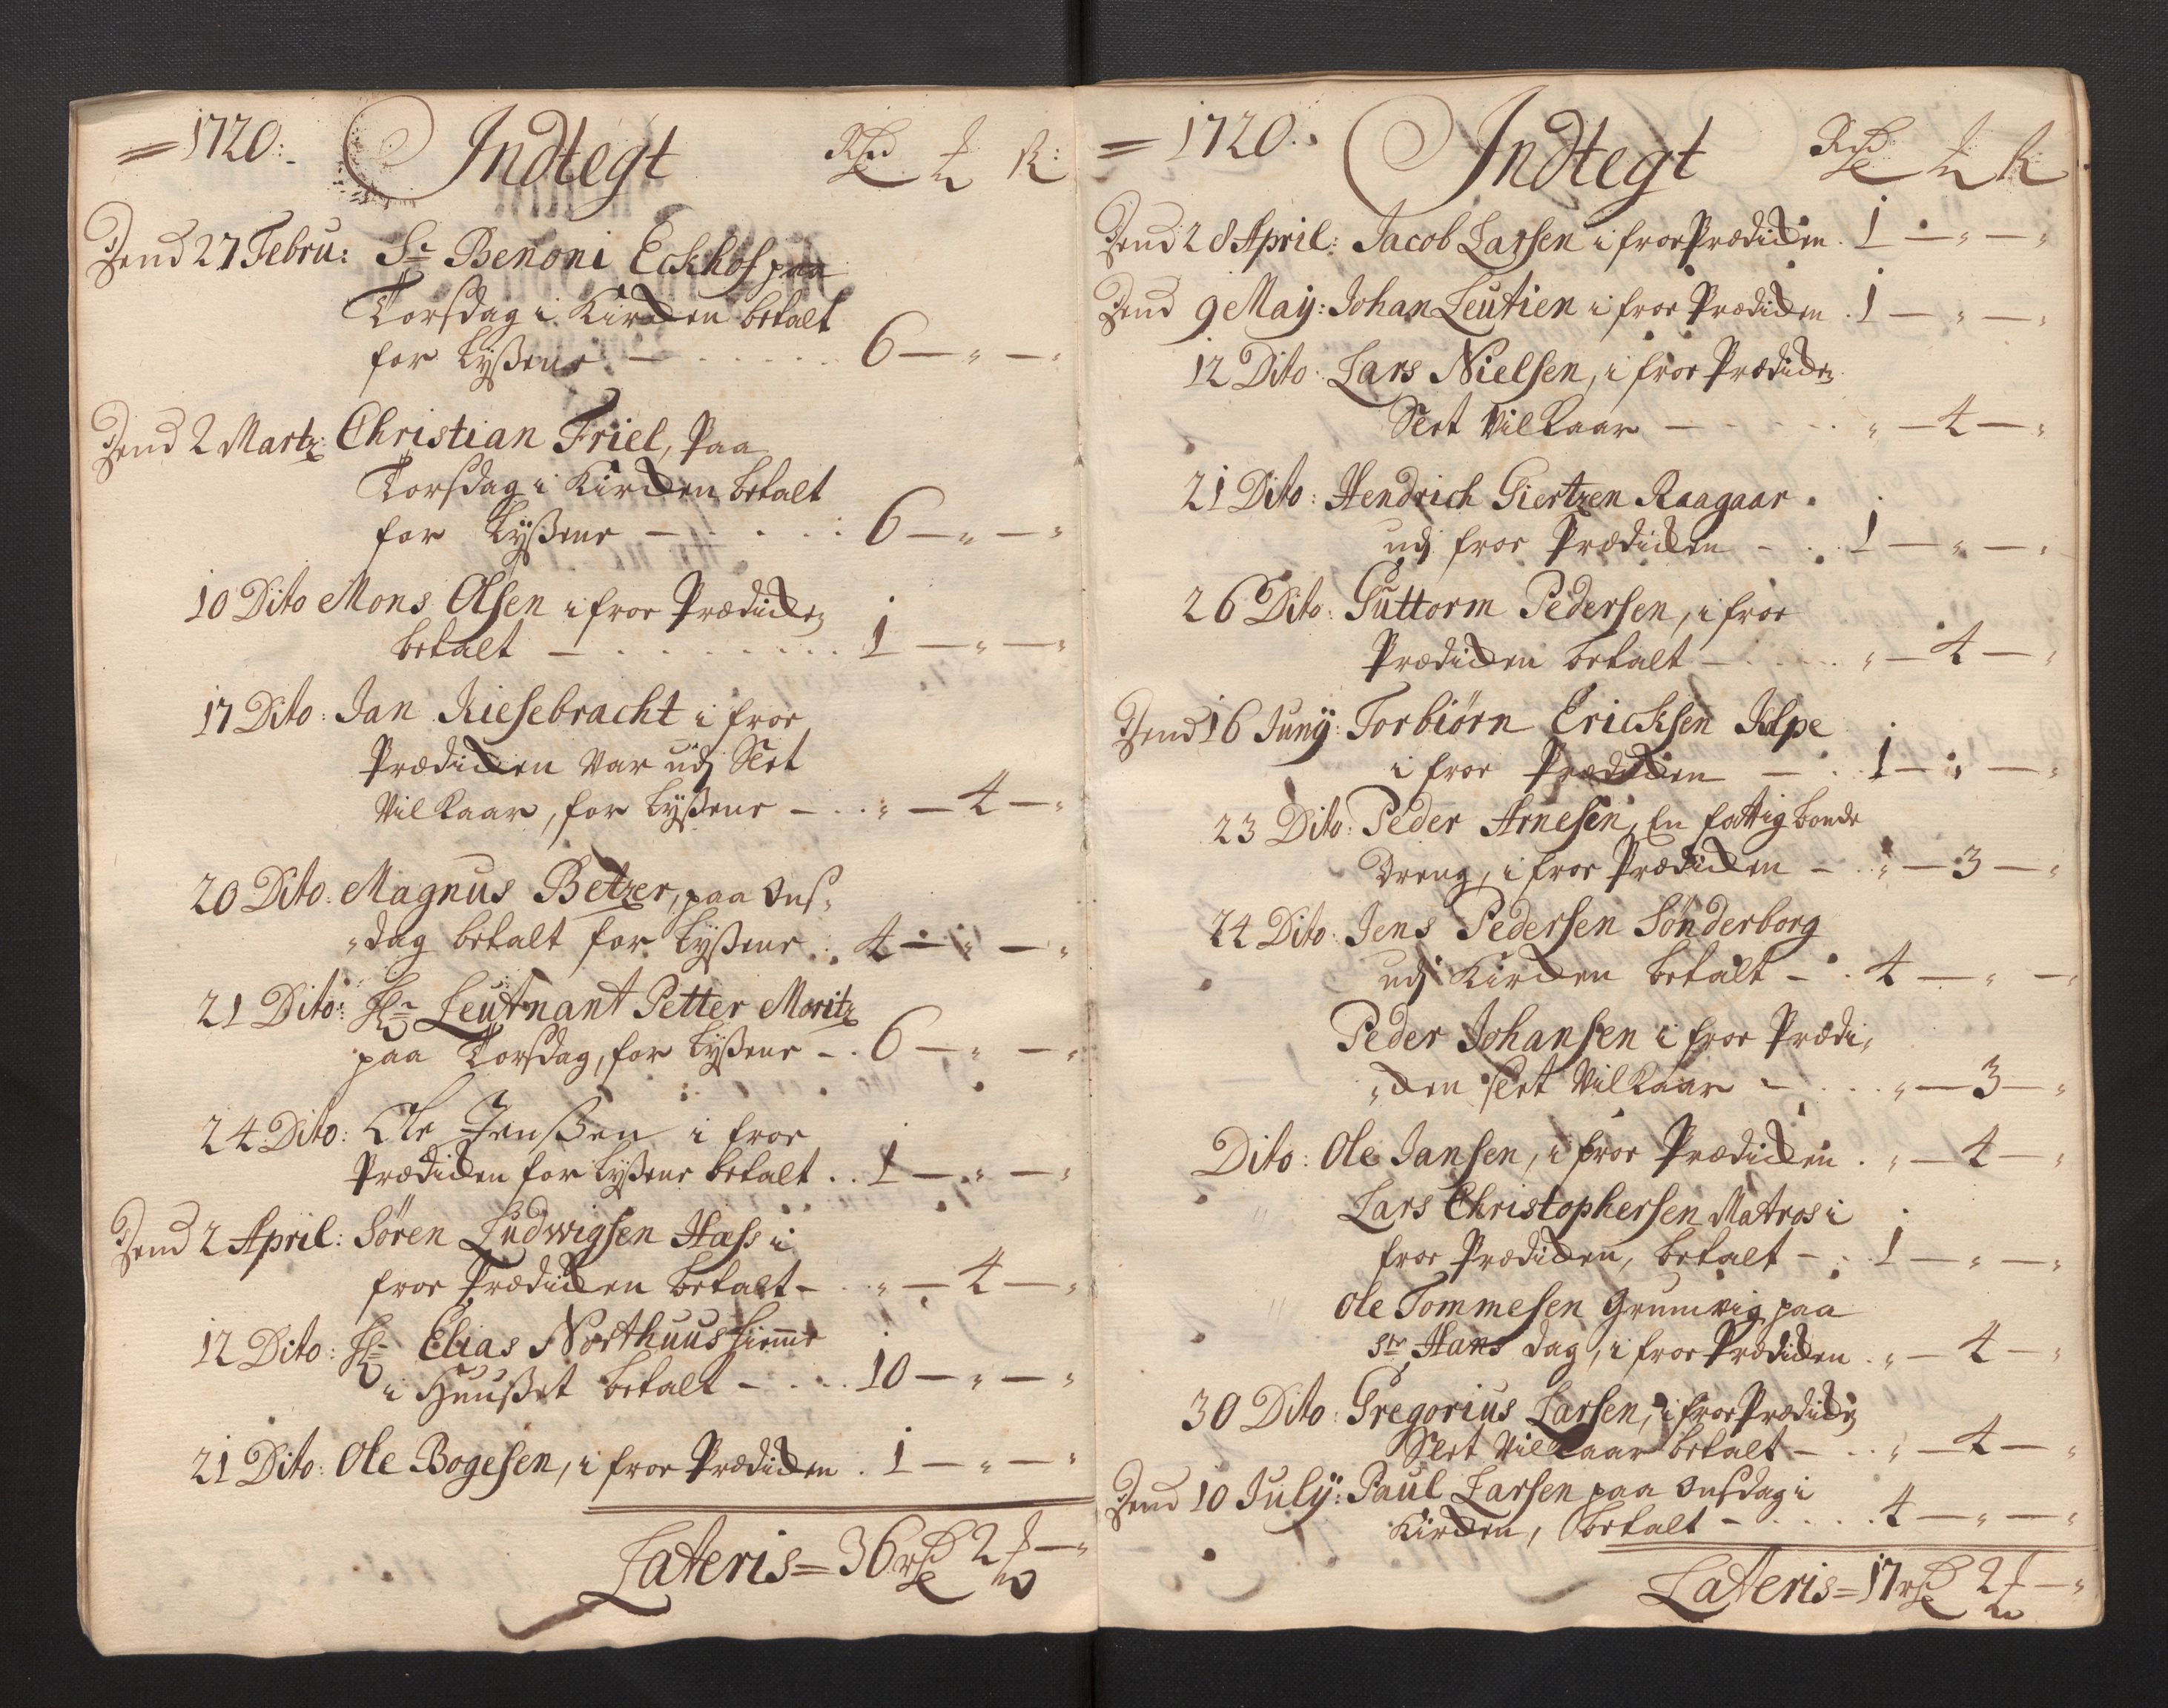 1720: Indtegt Rd ℔ ß:
Dend 27 Febru: Sr Benoni Eckhof paa
Torsdag i Kircken betalt
for Lyßene — 6 — „ — „
Dend 2 Marts: Christian Friel, Paa
Torsdag i Kircken betalt
for Lyßene — 6 — „ — „
10 Dito Mons Olsen i froe Prædicken
betalt — 1 — „ — „
17 Dito: Jan Riesebracht i froe
Prædicken Var udj Slet
Vilkaar, for Lyßene — „ — 4 — „
20 Dito: Magnus Betzer, paa Ons„
„dag betalt for Lyßene 4 — „ — „
21 Dito: Hr Leutnant Petter Moritz
paa Torsdag, for Lyßene — 6 — „ — „
24 Dito: Ole Jenßen i froe
Prædicken for Lyßene betalt 1 — „ — „
Dend 2 April: Sören Ludwigsen Hass i
froe Prædicken betalt — „ — 4 — „
12 Dito: Hr Elias Northuus hiemme
i Huußet betalt — 10 — „ — „
21 Dito: Ole Bogesen, i froe Prædicken 1 — „ — „
Lateris = 36 rd 2 ℔ — „
1720: Indtegt Rd ℔ ß
Dend 28 April: Jacob Larsen i froe Prædicken 1 — „ — „
Dend 9 May: Johan Leutien i froe Prædicken 1 — „ — „
12 Dito: Lars Nielsen, i froe Prædicken
Slet Vilkaar — „ — 4 — „
21 Dito: Hendrich Giertzen Raagaar
udj froe Prædicken — 1 — „ — „
26 Dito: Guttorm Pedersen, i froe
Prædicken betalt — „ — 4 — „
Dend 16 Juny: Torbiörn Ericksen
i froe Prædicken — 1 — „ — „
23 Dito: Peder Arnesen, En fattig bonde
Dreng, i froe Prædicken — „ — 3 — „
24 Dito: Jens Pedersen Sönderborg
udj Kircken betalt — 4 — „ — „
Peder Johansen i froe Prædi„
„cken slet Vilkaar — „ — 3 — „
Dito: Ole Jansen, i froe Prædicken „ — 4 — „
„ Lars Christophersen Matros i
froe Prædicken, betalt — 1 — „ — „
„ Ole Tommesen Grumvig paa
Str Hans dag, i froe Prædicken „ — 4 — „
30 Dito: Gregorius Larsen, i froe Prædicken
Slet Vilkaar betalt — „ — 4 — „
Dend 10 July: Paul Larsen paa Onsdag i
Kircken, betalt — 4 — „ — „
Lateris = 17 rd 2 ℔ — „